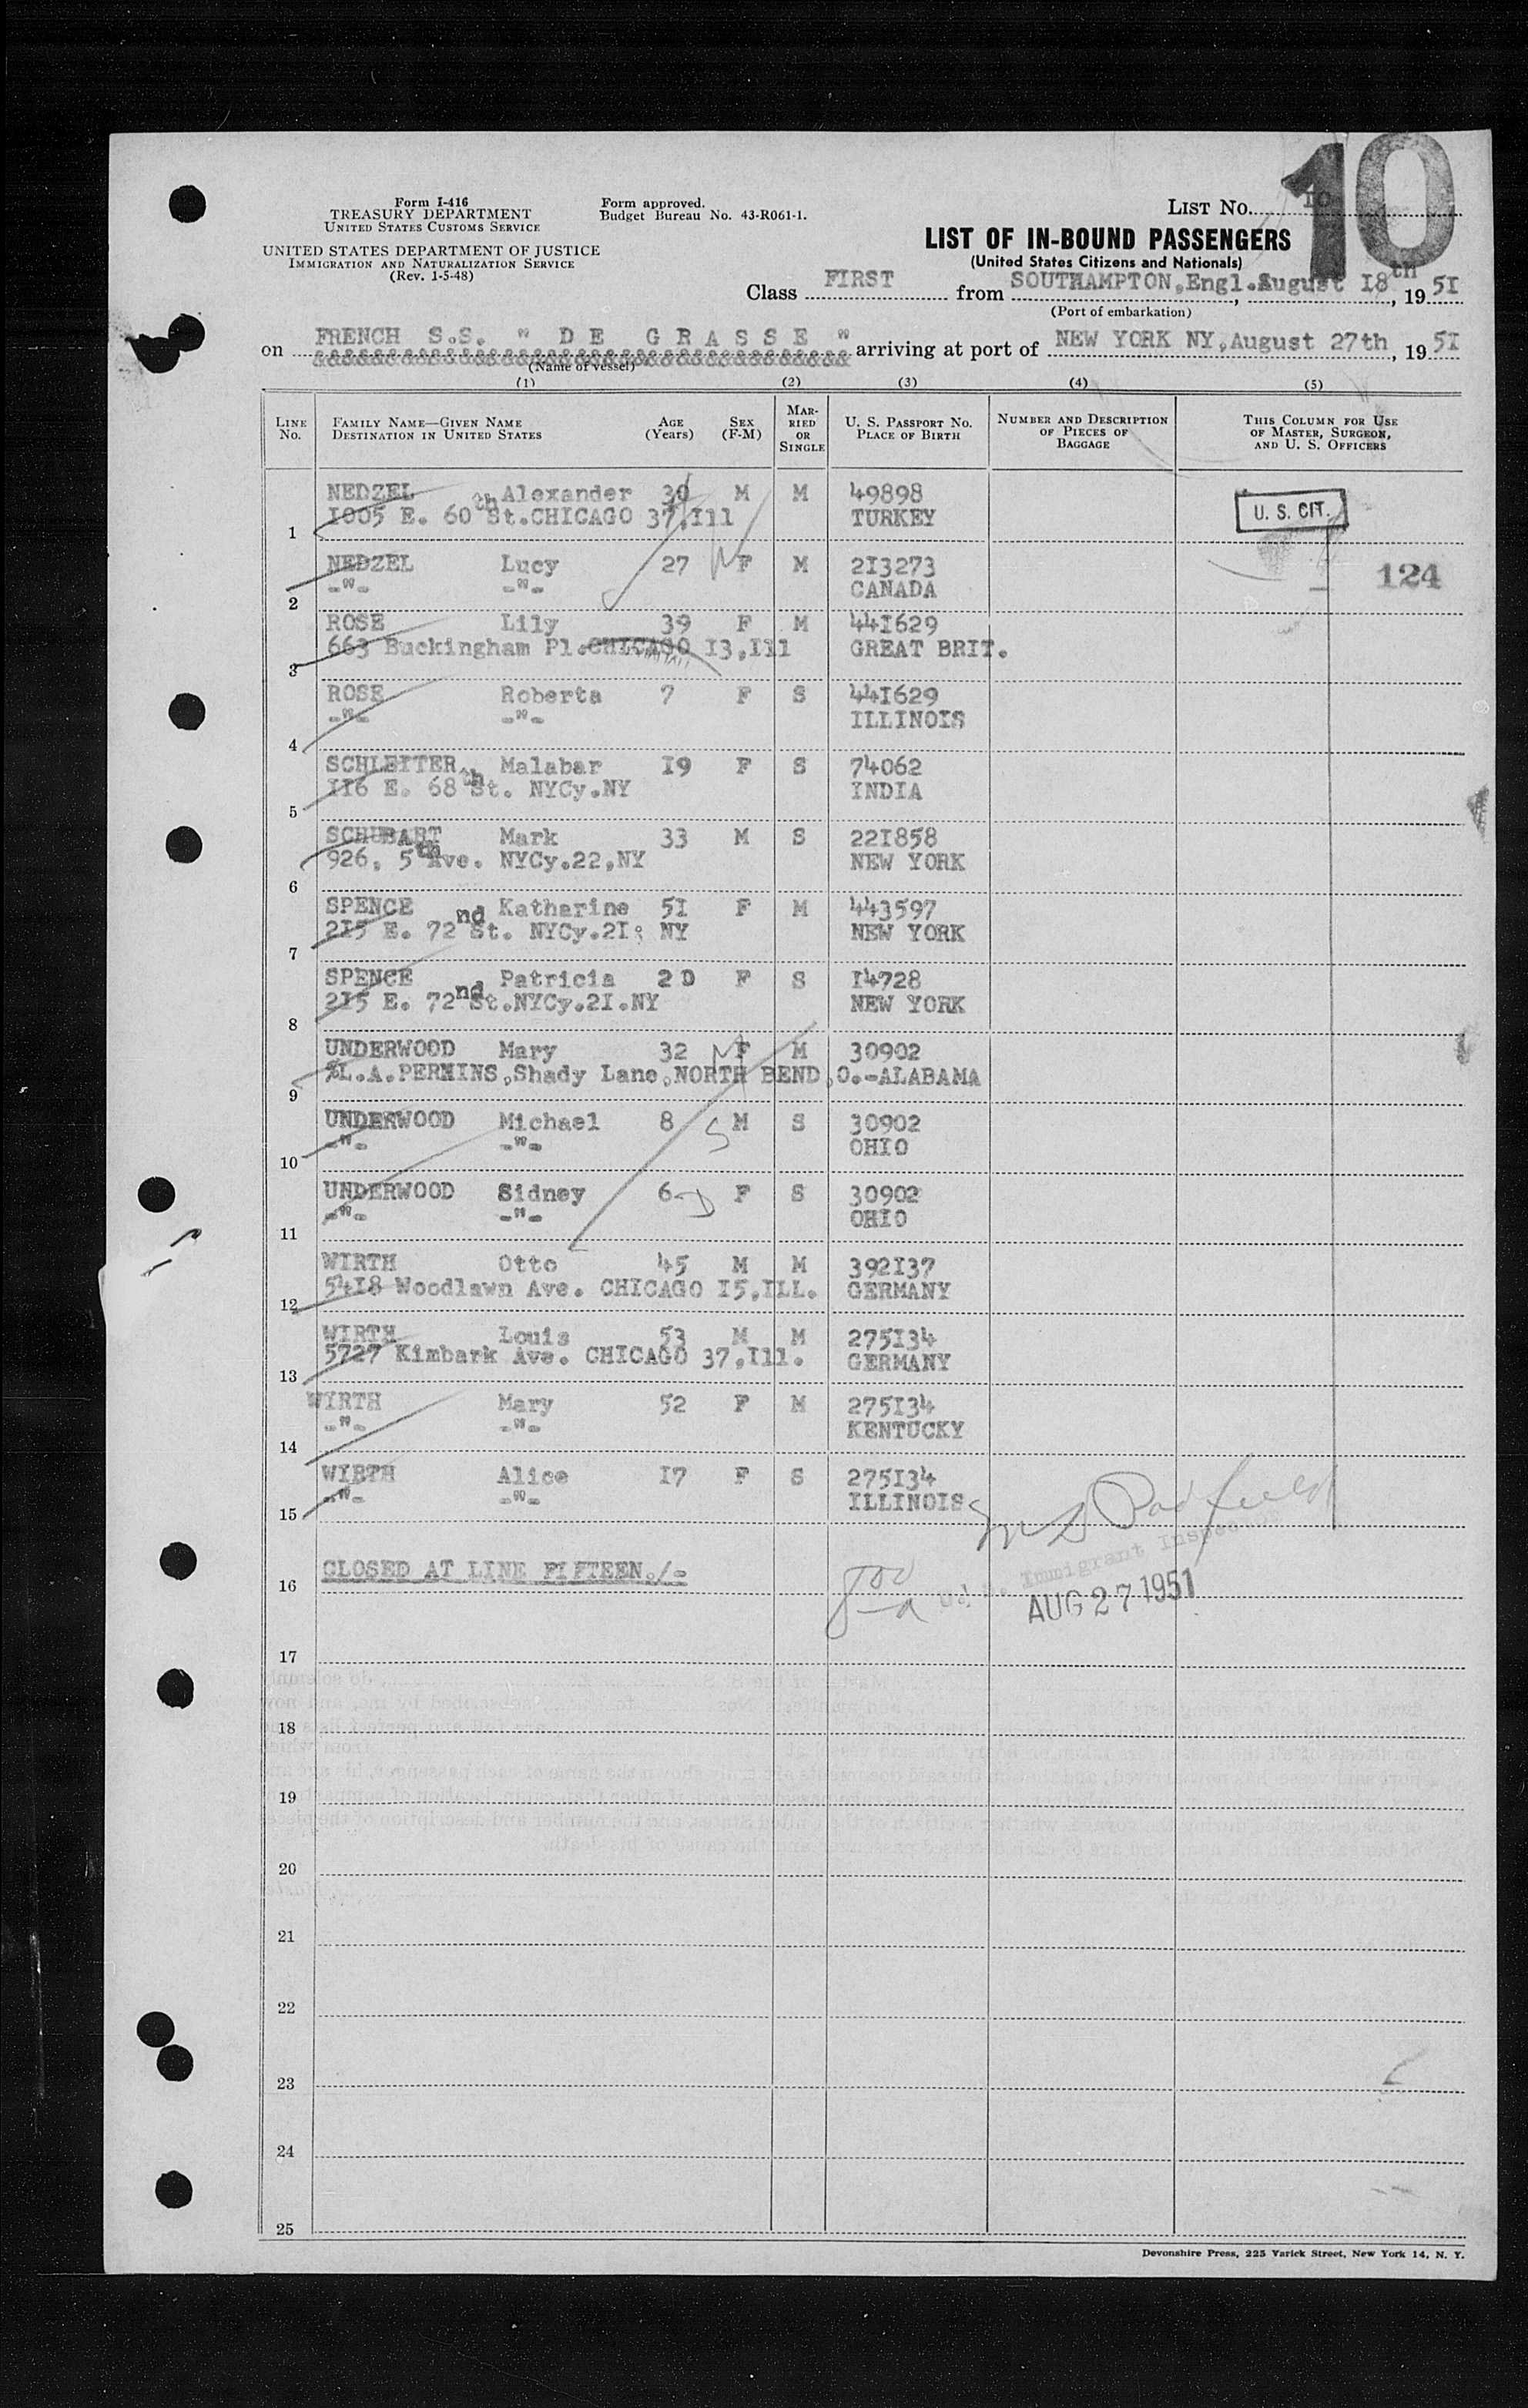 Form I-416
TREASURY DEPARTMENT
UNITED STATES CUSTOMS SERVICE
UNITED STATES DEPARTMENT OF JUSTICE
IMMIGRATION AND NATURALIZATION SERVICE
(Rev. 1-5-48)
Form approved.
Budget Bureau No. 43-R061-1.
LIST No. 10
10
LIST OF IN-BOUND PASSENGERS
(United States Citizens and Nationals)
Class FIRST from SOUTHAMPTON,Engl. August I8th, 19 5I
(Port of embarkation)
on FRENCH S.S. " D E G R A S S E " arriving at port of NEW YORK NY,August 27th, 19 5I
(Name of vessel)
(1) (2) (3) (4) (5)
LINE No. FAMILY NAME—GIVEN NAME DESTINATION IN UNITED STATES AGE (Years) SEX (F-M) MARRIED OR SINGLE U. S. PASSPORT NO. PLACE OF BIRTH NUMBER AND DESCRIPTION OF PIECES OF BAGGAGE THIS COLUMN FOR USE OF MASTER, SURGEON, AND U. S. OFFICERS
NEDZEL Alexander 30 M M 49898
1 I005 E. 60th St.CHICAGO 37,Ill TURKEY U. S. CIT.
NEDZEL Lucy 27 F M 2I3273
2 -"- -"- CANADA 124
ROSE Lily 39 F M 44I629
3 663 Buckingham Pl.CHICAGO I3,Ill GREAT BRIT.
ROSE Roberta 7 F S 44I629
4 -"- -"- ILLINOIS
SCHLEITER Malabar I9 F S 74062
5 II6 E. 68th St. NYCy.NY INDIA
SCHUBART Mark 33 M S 22I858
6 926, 5th Ave. NYCy.22,NY NEW YORK
SPENCE Katharine 5I F M 443597
7 2I5 E. 72nd St. NYCy.2I, NY NEW YORK
SPENCE Patricia 20 F S I4728
8 2I5 E. 72nd St.NYCy.2I.NY NEW YORK
UNDERWOOD Mary 32 F M 30902
9 %L.A.PERKINS,Shady Lane,NORTH BEND,O.-ALABAMA
UNDERWOOD Michael 8 M S 30902
10 -"- -"- OHIO
UNDERWOOD Sidney 6 F S 30902
11 -"- -"- OHIO
WIRTH Otto 45 M M 392I37
12 54I8 Woodlawn Ave. CHICAGO I5,ILL. GERMANY
WIRTH Louis 53 M M 275I34
13 5727 Kimbark Ave. CHICAGO 37,Ill. GERMANY
WIRTH Mary 52 F M 275I34
14 -"- -"- KENTUCKY
WIRTH Alice I7 F S 275I34
15 -"- -"- ILLINOIS
16 CLOSED AT LINE FIFTEEN./-
Immigrant Inspector
AUG 27 1951
17
18
19
20
21
22
23
24
25
Devonshire Press, 225 Varick Street, New York 14, N. Y.